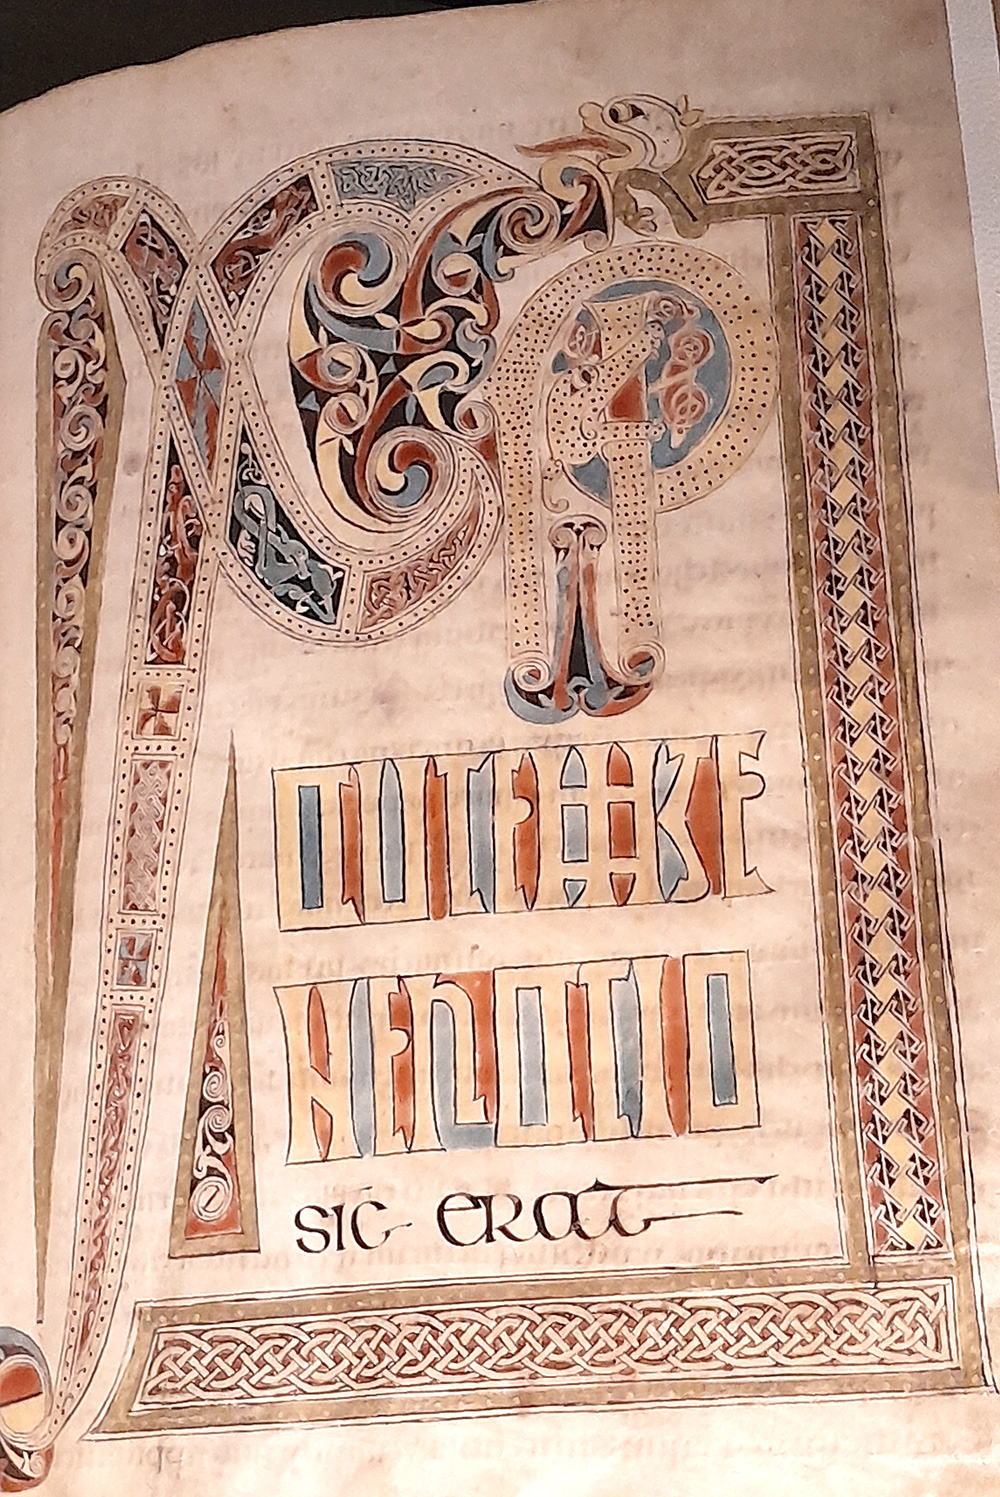 XPI
AUTEMGE
NERATIO
SIC ERAT